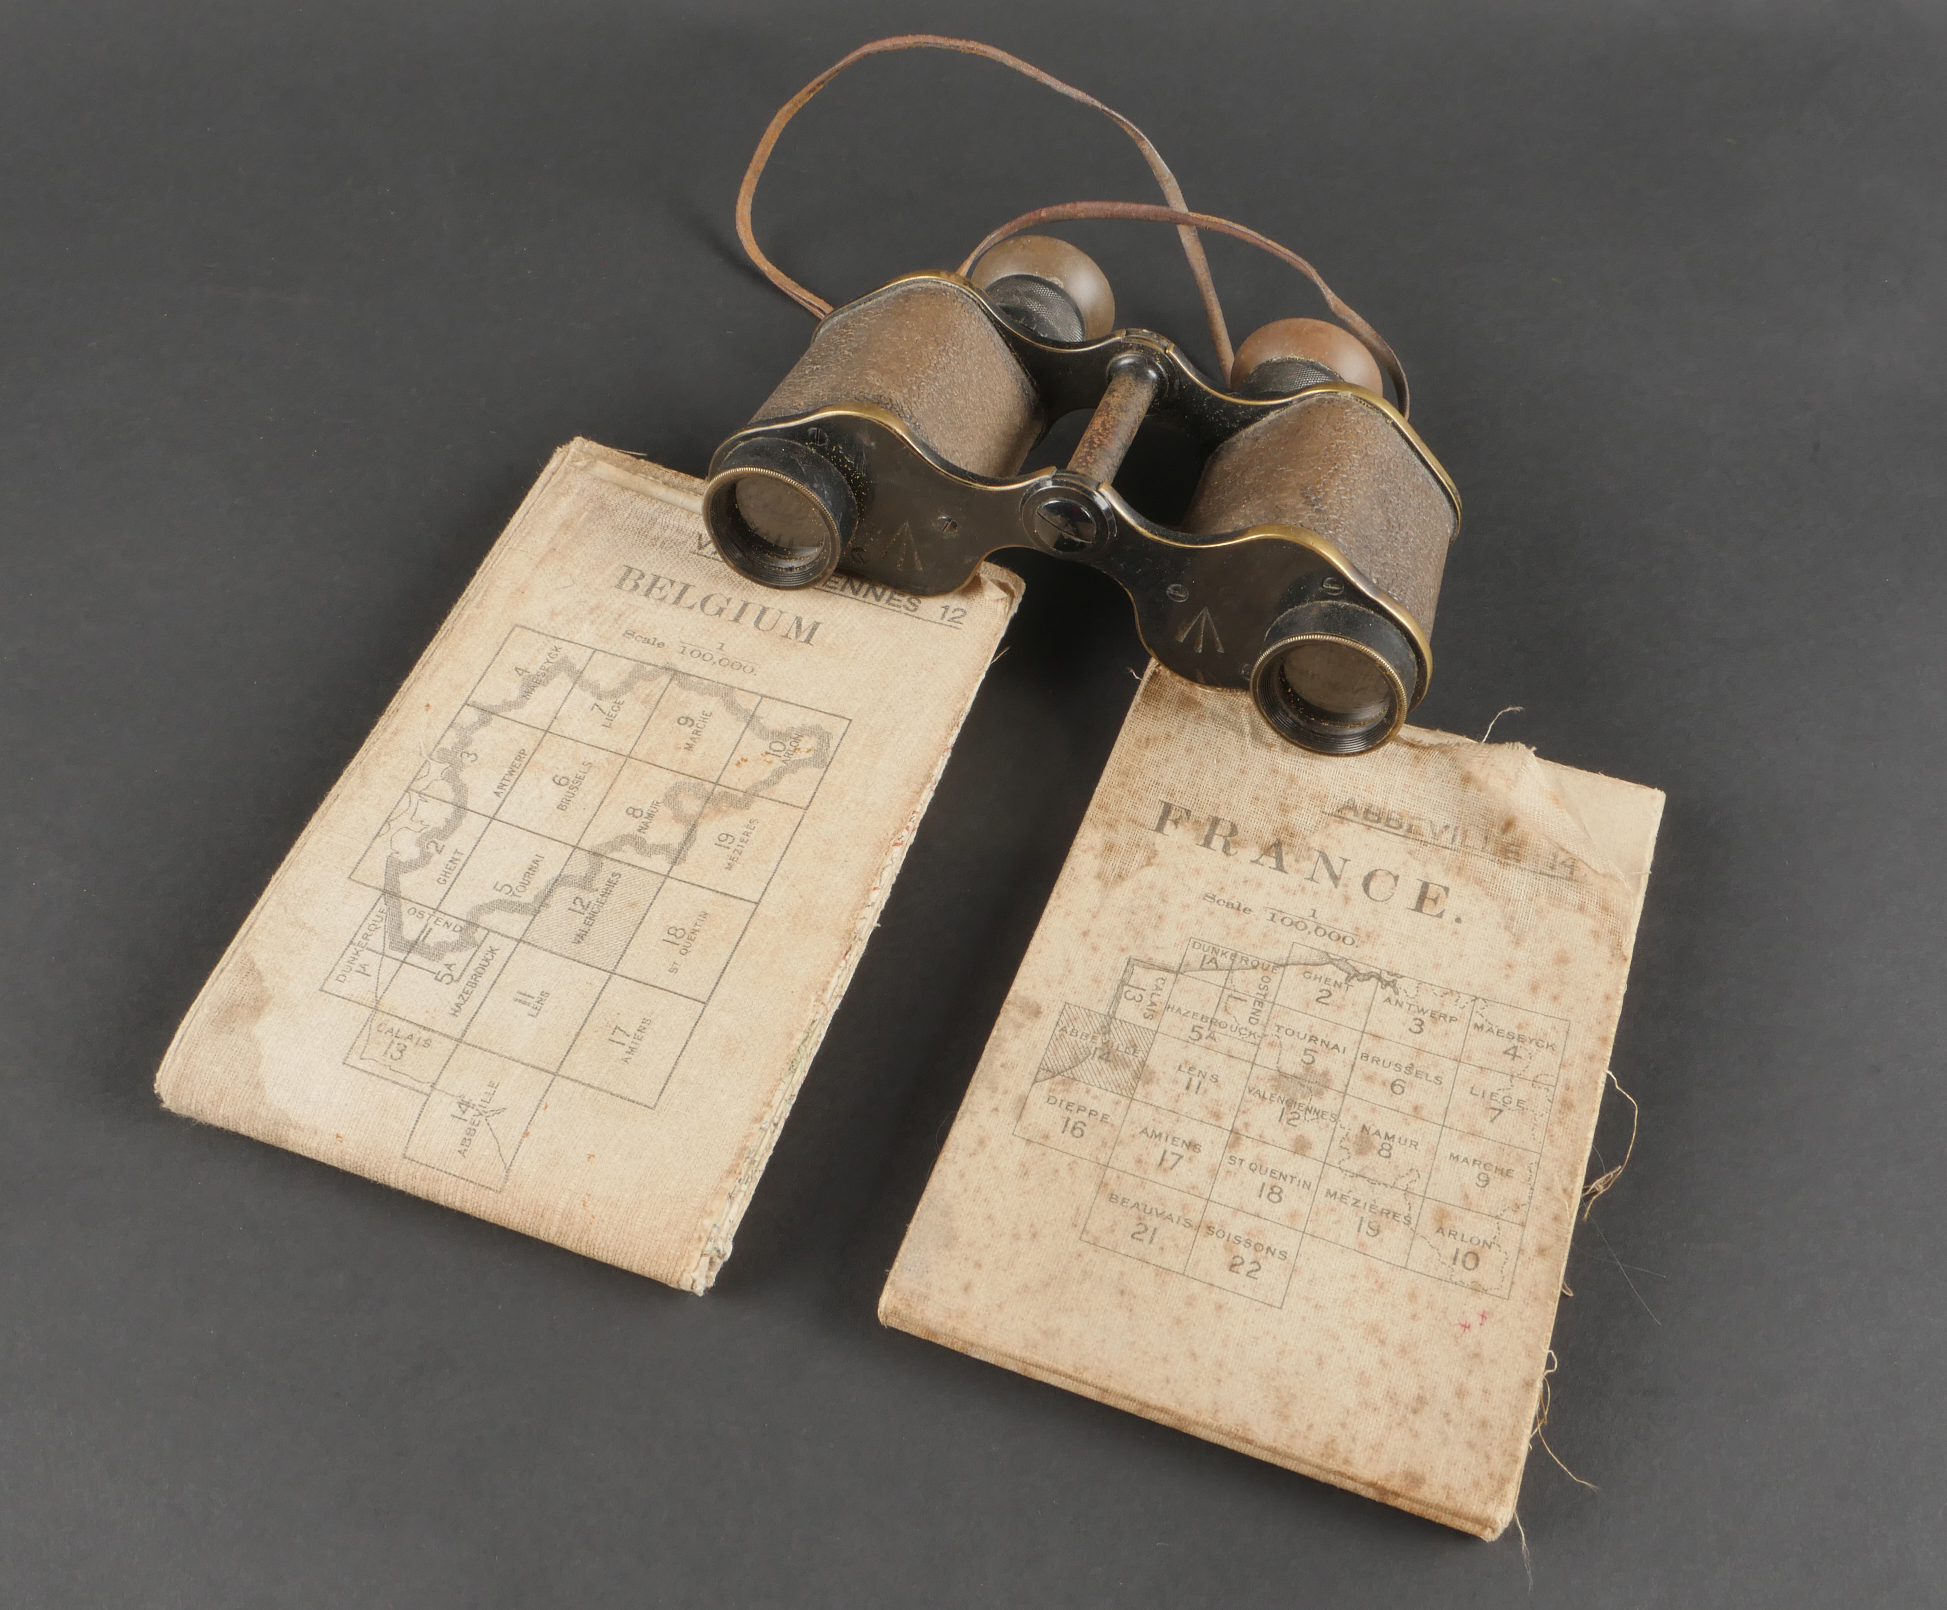 VALENCIENNES 12
BELGIUM
Scale 1
100,000.
4
MAESEYCK
7
LIEGE
9
MARCHE
10
ARLON
3
ANTWERP
6
BRUSSELS
8
NAMUR
19
MEZIERES
2
GHENT
5
TOURNAI
12
VALENCIENNES
18
ST QUENTIN
DUNKERQUE
1A
OSTEND
1
5A
HAZEBROUCK
11
LENS
17
AMIENS
CALAIS
13
14
ABBEVILLE
ABBEVILLE 14
FRANCE.
Scale 1
100,000.
DUNKERQUE
1A
OSTEND
1
GHENT
2
ANTWERP
3
MAESEYCK
4
CALAIS
13
HAZEBROUCK
5A
TOURNAI
5
BRUSSELS
6
LIEGE
7
ABBEVILLE
14
LENS
11
VALENCIENNES
12
NAMUR
8
MARCHE
9
DIEPPE
16
AMIENS
17
ST QUENTIN
18
MÉZIÈRES
19
ARLON
10
BEAUVAIS
21
SOISSONS
22